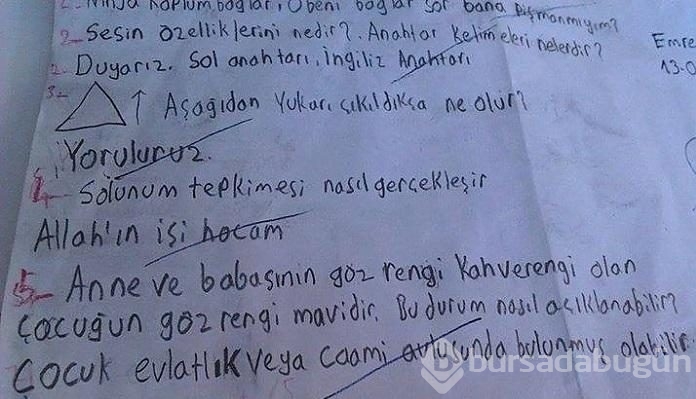 Ninja Kaplumbağlar, Obeni bağlar sor bana pişmanmıyım?
2- Sesin özelliklerini nedir? Anahtar kelimeleri nelerdir?
2- Duyarız. Sol anahtarı, İngiliz Anahtarı
Emre
13-0
3- ↑ Aşağıdan Yukarı çıkıldıkça ne olur?
Yoruluruz.
4- Solunum tepkimesi nasıl gerçekleşir
Allah'ın işi hocam
5- Anne ve babasının göz rengi Kahverengi olan
çocuğun göz rengi mavidir. Bu durum nasıl açıklanabilir?
Çocuk evlatlık veya Caami avlusunda bulunmuş olabilir.
bursadabugün